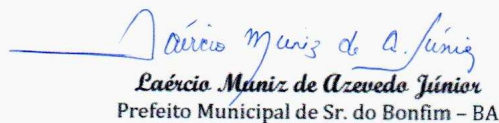 Laércio Muniz de A. Júnior
Laércio Muniz de Azevedo Júnior
Prefeito Municipal de Sr. do Bonfim – BA